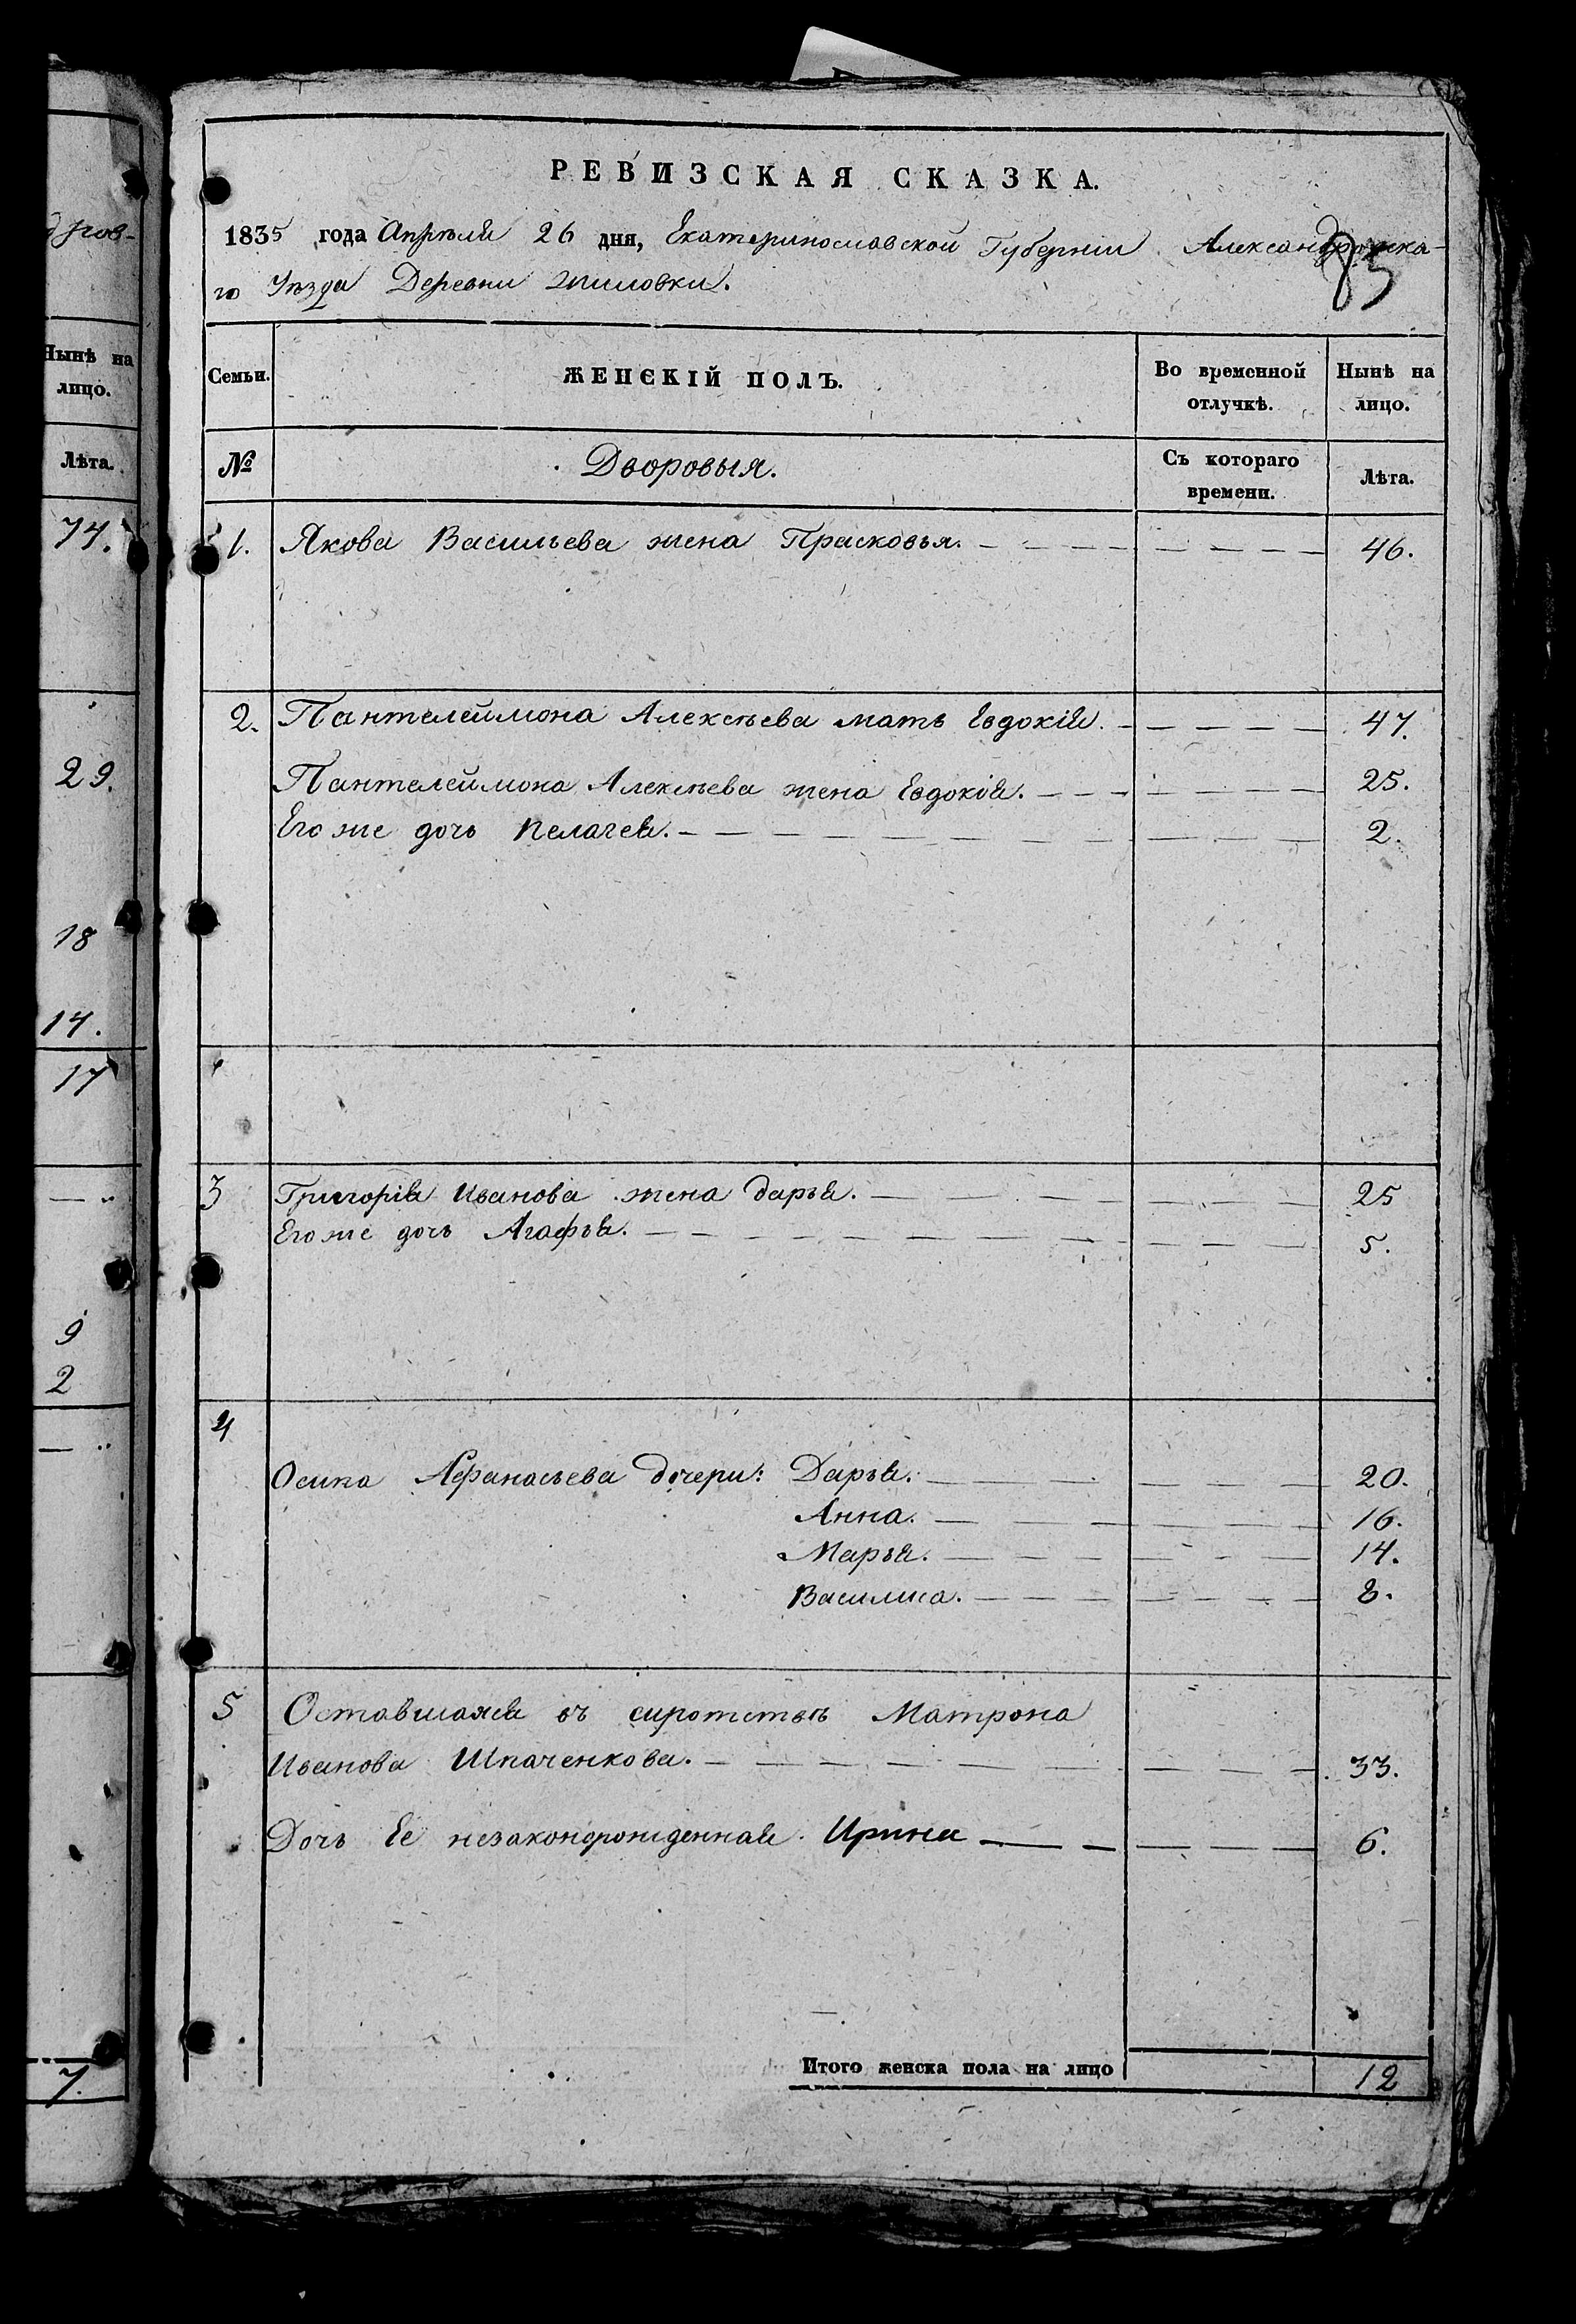 дров-
Нынѣ на
лицо.
Лѣта.
74.
29.
18
14.
17
9
2
7.
РЕВИЗСКАЯ СКАЗКА.
1835 года Апрѣля 26 дня, Екатеринославской Губерніи Александровска-
85
го Уѣзда Деревни
Семьи. ЖЕНСКІЙ ПОЛЪ. Во временной отлучкѣ. Нынѣ на лицо.
№ Дворовыя. Съ котораго времени. Лѣта.
1. Якова Васильева жена Прасковья. 46.
2. Пантелеймона Алексѣева мать Евдокія. 47.
Пантелеймона Алексѣева жена Евдокія. 25.
Его же дочь Пелагея. 2.
3 Григорія Иванова жена Дарья. 25
Его же дочь Агафья. 5.
4
Осипа Афанасьева дочери: Дарья. 20.
Анна. 16.
Марья. 14.
Василиса. 8.
5 Оставшаяся въ сиротствѣ Матрона
Иванова Шпаченкова. 33.
Дочь Ее незаконорожденная Ирина 6.
Итого женска пола на лицо 12